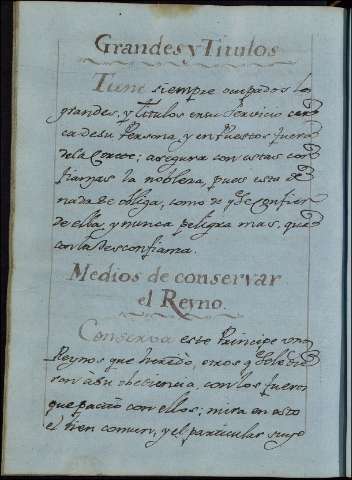 Grandes y Titulos
Tiene siempre ocupados los
grandes, y Titulos en su Servicio cer
ca de su Persona, y en Puestos fuera
de la Corte; asegura con estas con
fianzas la nobleza, pues esta de
nada se obliga, como de q̃ se confien
de ella, y nunca peligra mas, que
con la desconfianza.
Medios de conservar
el Reyno.
Conserva este Principe unos
Reynos que heredó, otros q̃ se le die
ron à su obediencia, con los fueros
que pactó con ellos; mira en esto
el bien comun, y el particular suyo